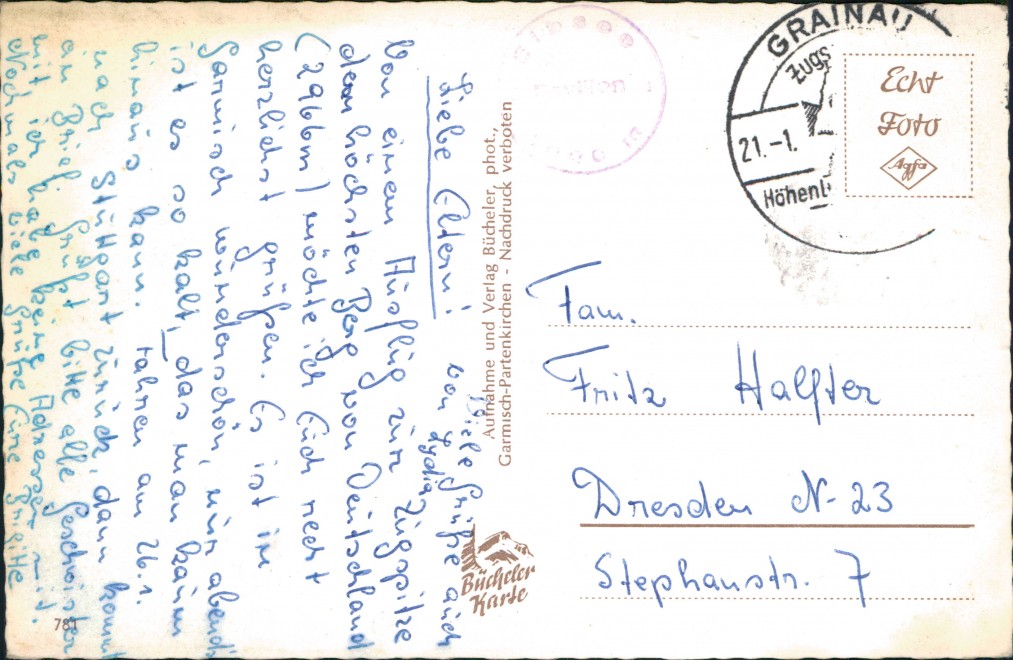 Liebe Eltern!
Von einem Ausflug zur Zugspitze
dem höchsten Berg von Deutschland
(2966m) möchte ich Euch recht
herzlichst grüßen. Es ist in
Garmisch wunderschön, nur abends
ist es so kalt, das man kaum
hinaus kann. Fahren am 26.1.
nach Stuttgart zurück, dann kommt
ein Brief. Grüßt bitte alle Geschwister
mit, ich habe keine Adressen mit.
Nochmals viele Grüße Eure Brigitte
Viele Grüße auch
von Lydia
Aufnahme und Verlag Bücheler, phot.,
Garmisch-Partenkirchen - Nachdruck verboten
Bücheler
Karte
781
GRAINAU
Zugs
21.-1.
Höhenl
Echt
Foto
Agfa
Fam.
Fritz Halfter
Dresden N-23
Stephanstr. 7